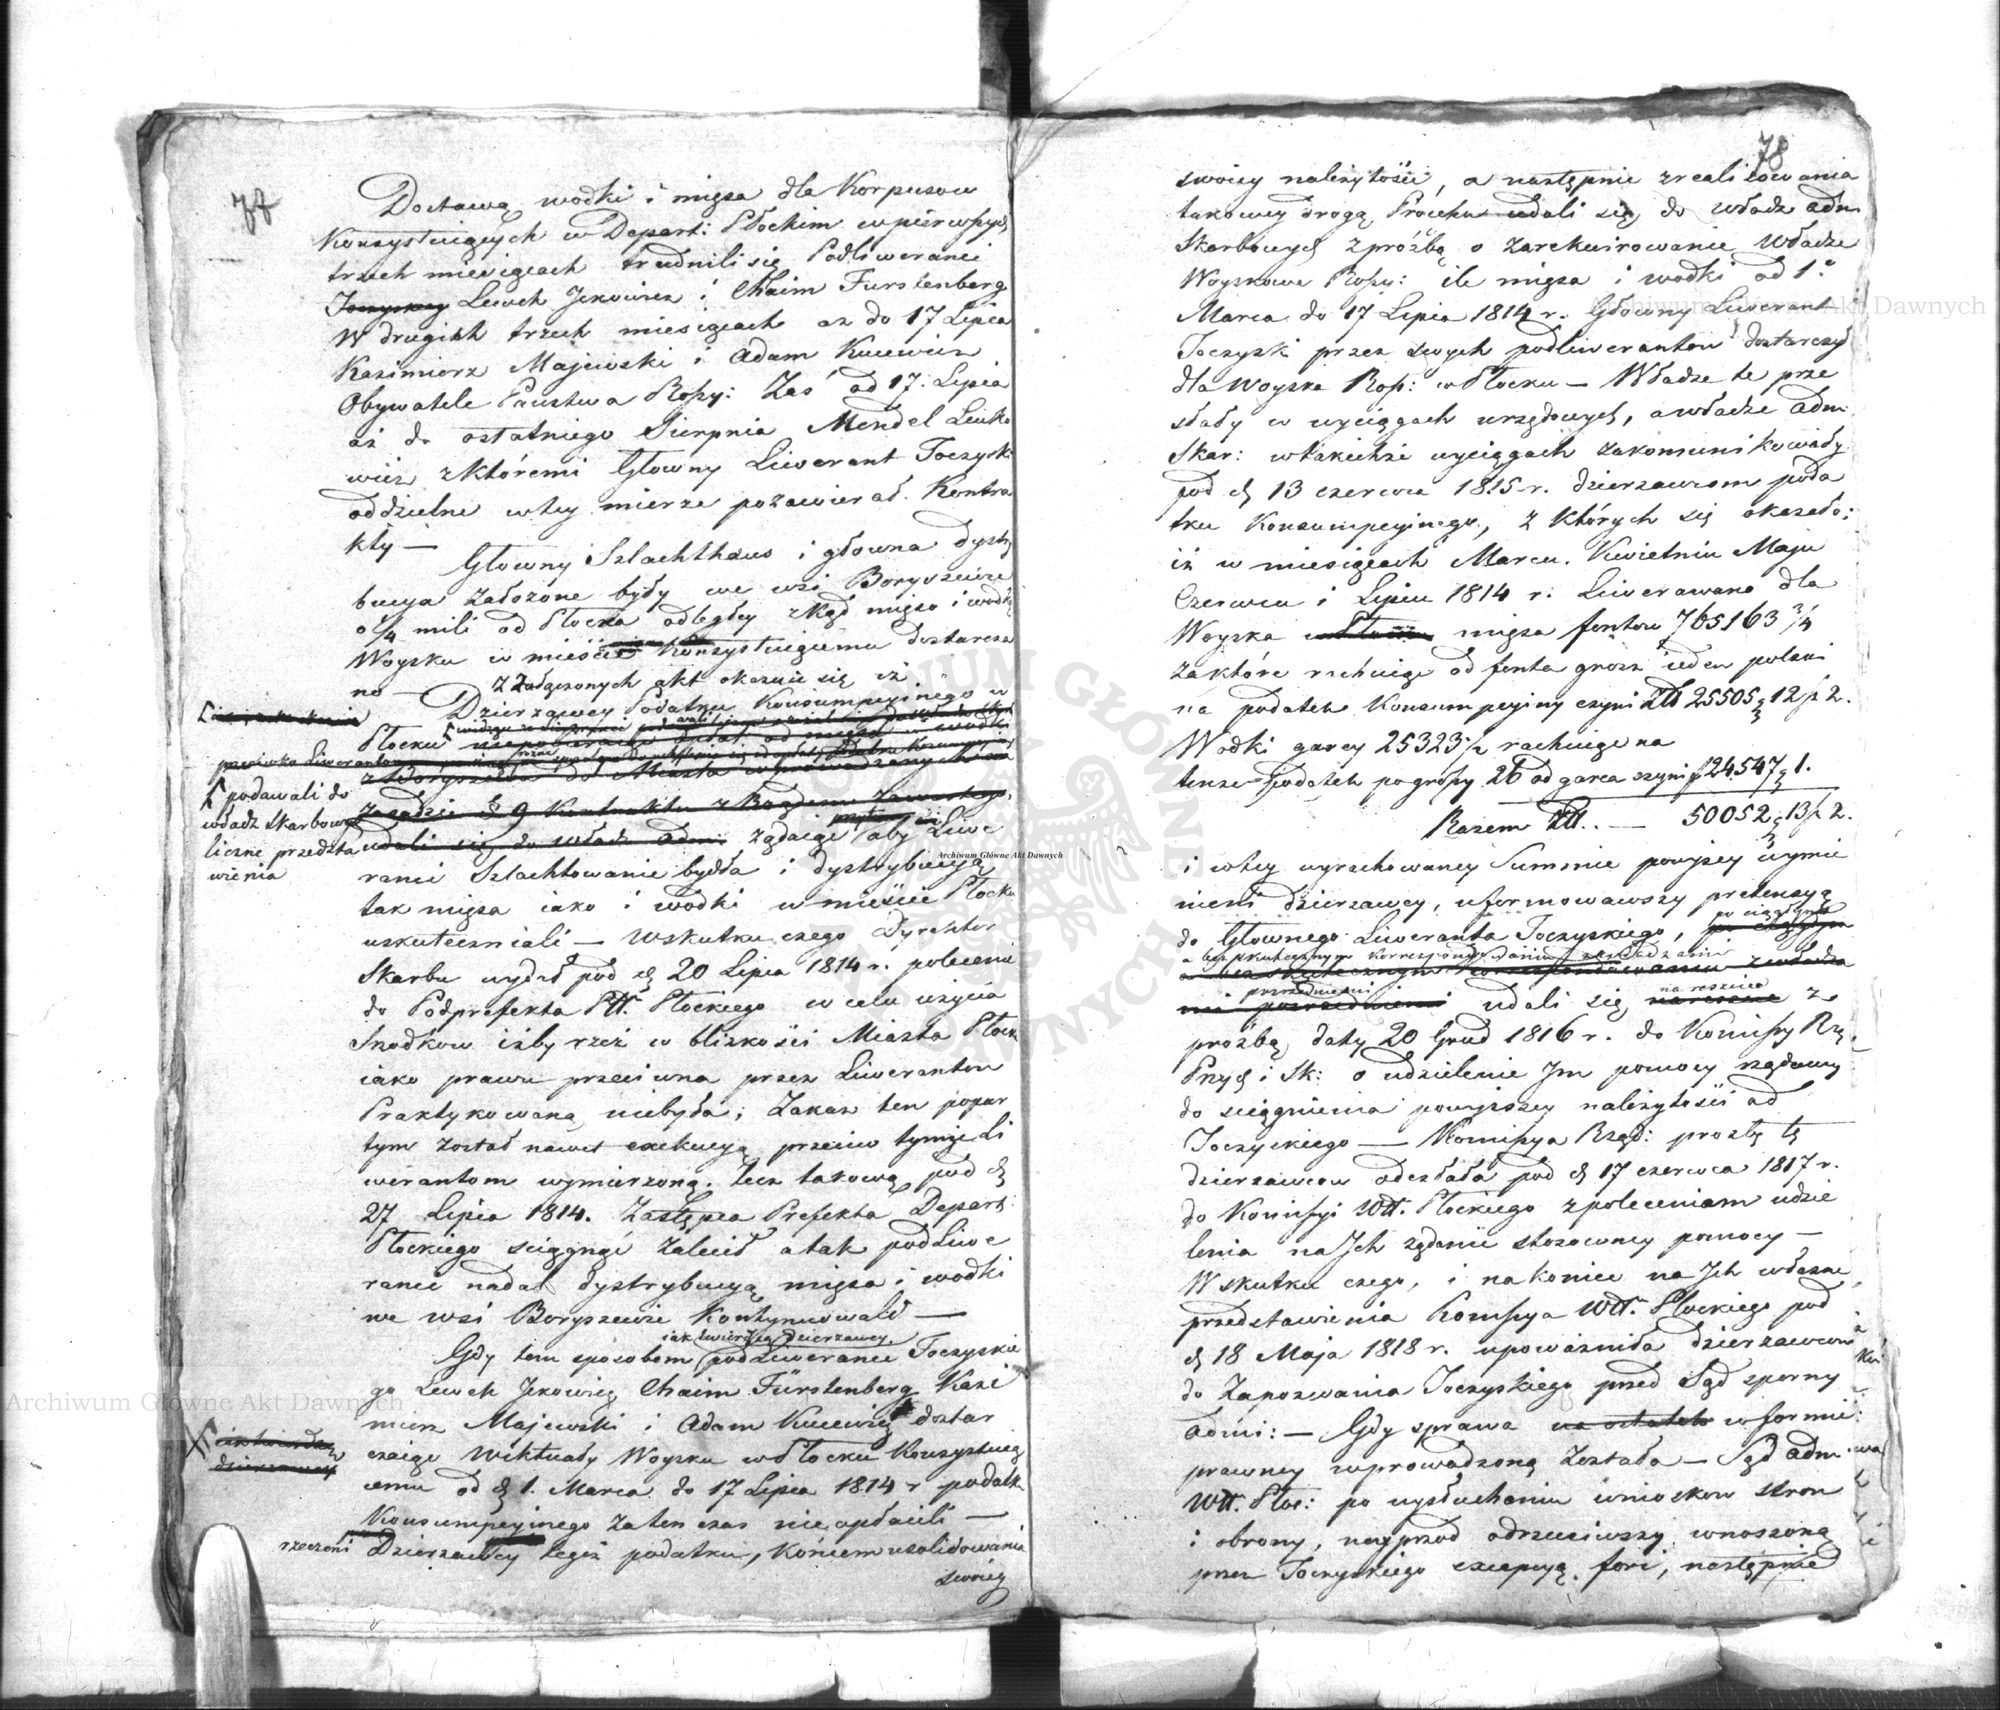 77
Dostawą wodki i mięsa dla Korpusow
Konsystuiących w Depart: Płockim w pierwszych
trzech miesiącach trudnili się Podliweranci
Joczyskiego Lewek Jekowicz i Chaim Furstenberg
W drugich trzech miesiącach az do 17 Lipca
Kazimierz Majewski i Adam Kucewicz
Obywatele Panstwa Rossy: Zaś od 17. Lipca
aż do ostatniego Sierpnia Mendel Lewko
wicz z ktoremi Głowny Liwerant Joczyski
oddzielne w tey mierze pozawierał Kontra
kty —
Głowny Szlachthaus i głowna dystry
bucya założone były we wsi Boryszewie
o 1/4 mili od Płocka odległey zkąd mięso i wodkę
Woysku w mieście Konsystuiącemu dostarcza
no — Z załączonych akt okazuie się iż
Dzierzawcy Podatku Konsumpcyinego w
Płocku
przeciwko Liwerantom
z Boryszewa do Miasta wprowadzanych
podawali do
władz skarbow
liczne przedsta
wienia
zasadzie § 9 Kontraktu z Rządem zawartego
udali się do władz adm: żądaiąc aby Liwe
ranci Szlachtowanie bydła i dystrybucyą
tak mięsa iako i wodki w mieście Płocku
uskuteczniali — Wskutku czego Dyrektor
Skarbu wydał pod d. 20 Lipca 1814 r. polecenie
do Podprefekta Ptt. Płockiego w celu użycia
Srodkow iżby rzeź w bliskości Miasta Płocka
iako prawu przeciwna przez Liwerantow
Praktykowaną niebyła; Zakaz ten popar
tym został nawet exekucyą przeciw tymże Li
werantom wymierzoną. lecz takową pod d.
27 Lipca 1814. Zastępca Prefekta Depart:
Płockiego sciągnąć zalecił a tak podliwe
ranci nadal dystrybucyą mięsa i wodki
we wsi Boryszewie Kontynuowali —
iak twierdzą Dzierzawcy
Gdy tem sposobem podliweranci Joczyskie
go Lewek Jekowicz Chaim Fürstenberg Kazi
mierz Majewski i Adam Kucewicz dostar
iak twierdzą
dzierzawcy
czaiąc Wiktuały Woysku w Płocku Konsystuią
cemu od d. 1. Marca do 17 Lipca 1814 r podatku
Konsumpcyinego za ten czas nie opłacili —
rzeczeni Dzierzawcy tegoż podatku, końcem usolidowania
swoiey
78
swoiey należytości, a następnie zrealizowania
takowey drogą Processu udali się do władz adm
Skarbowych z proźbą o zarekwirowanie Władze
Woyskowe Rossy: ile mięsa i wodki od 1.
Marca do 17 Lipca 1814 r. Głowny Liwerant
Joczyski przez swych podliwerantow dostarczył
dla Woyska Ross: w Płocku — Władze te prze
słały w wyciągach urzędowych, a władze adm:
Skar: w takichże wyciągach zakomunikowały
pod d. 13 czerwca 1815 r. dzierzawcom poda
tku Konsumpcyinego, z ktorych się okazało:
iż w miesiącach Marcu. Kwietniu Maju
Czerwcu i Lipcu 1814 r. Liwerowano dla
Woyska w Płocku mięsa funtow 765163 3/4
za ktore rachuiąc od funta grosz ieden polski
na podatek Konsumpcyiny czyni Zll 25505 12 1/2.
Wodki garcy 25323 1/2 rachuiąc na
tenże Podatek po groszy 26 od garca czyni f 24547 1.
Razem Zll. . — 50052 13 1/2.
i w tey wyrachowaney Summie powyżey wymie
nieni dzierzawcy, uformowawszy pretensyą
do Głownego Liweranta Joczyskiego, po ciągłym
a bezskutecznym Korrespondowaniu z władzami
a bezskutecznym Korrespondowaniu z władza
posredniemi na reszcie
mi posredniemi udali się na reszcie z
proźbą daty 20 Grud 1816 r. do Komissy Rz.
Przych i Sk: o udzielenie Im pomocy rządowey
do sciągnienia powyższey należytości od
Joczyskiego — Komissya Rząd: prozbę tę
dzierzawcow odesłała pod d. 17 czerwca 1817 r.
do Komissyi Wtt. Płockiego z poleceniem udzie
lenia na Ich żądanie stosowney pomocy —
W skutku czego, i nakoniec na Ich własne
przedstawienia Komssya Wtt. Płockiego pod
d. 18 Maja 1818 r. upoważniła dzierzawcow
do Zapozwania Joczyskiego przed Sąd sporny
admi: — Gdy sprawa na ostatek w formie
prawney wprowadzoną została — Sąd adm
Wtt. Płoc: po wysłuchaniu wnioskow stron
i obrony, nayprzod odrzuciwszy wnoszoną
przez Joczyskiego excepcyą fori, następnie
Archiwum Główne Akt Dawnych
Archiwum Główne Akt Dawnych
Archiwum Główne Akt Dawnych